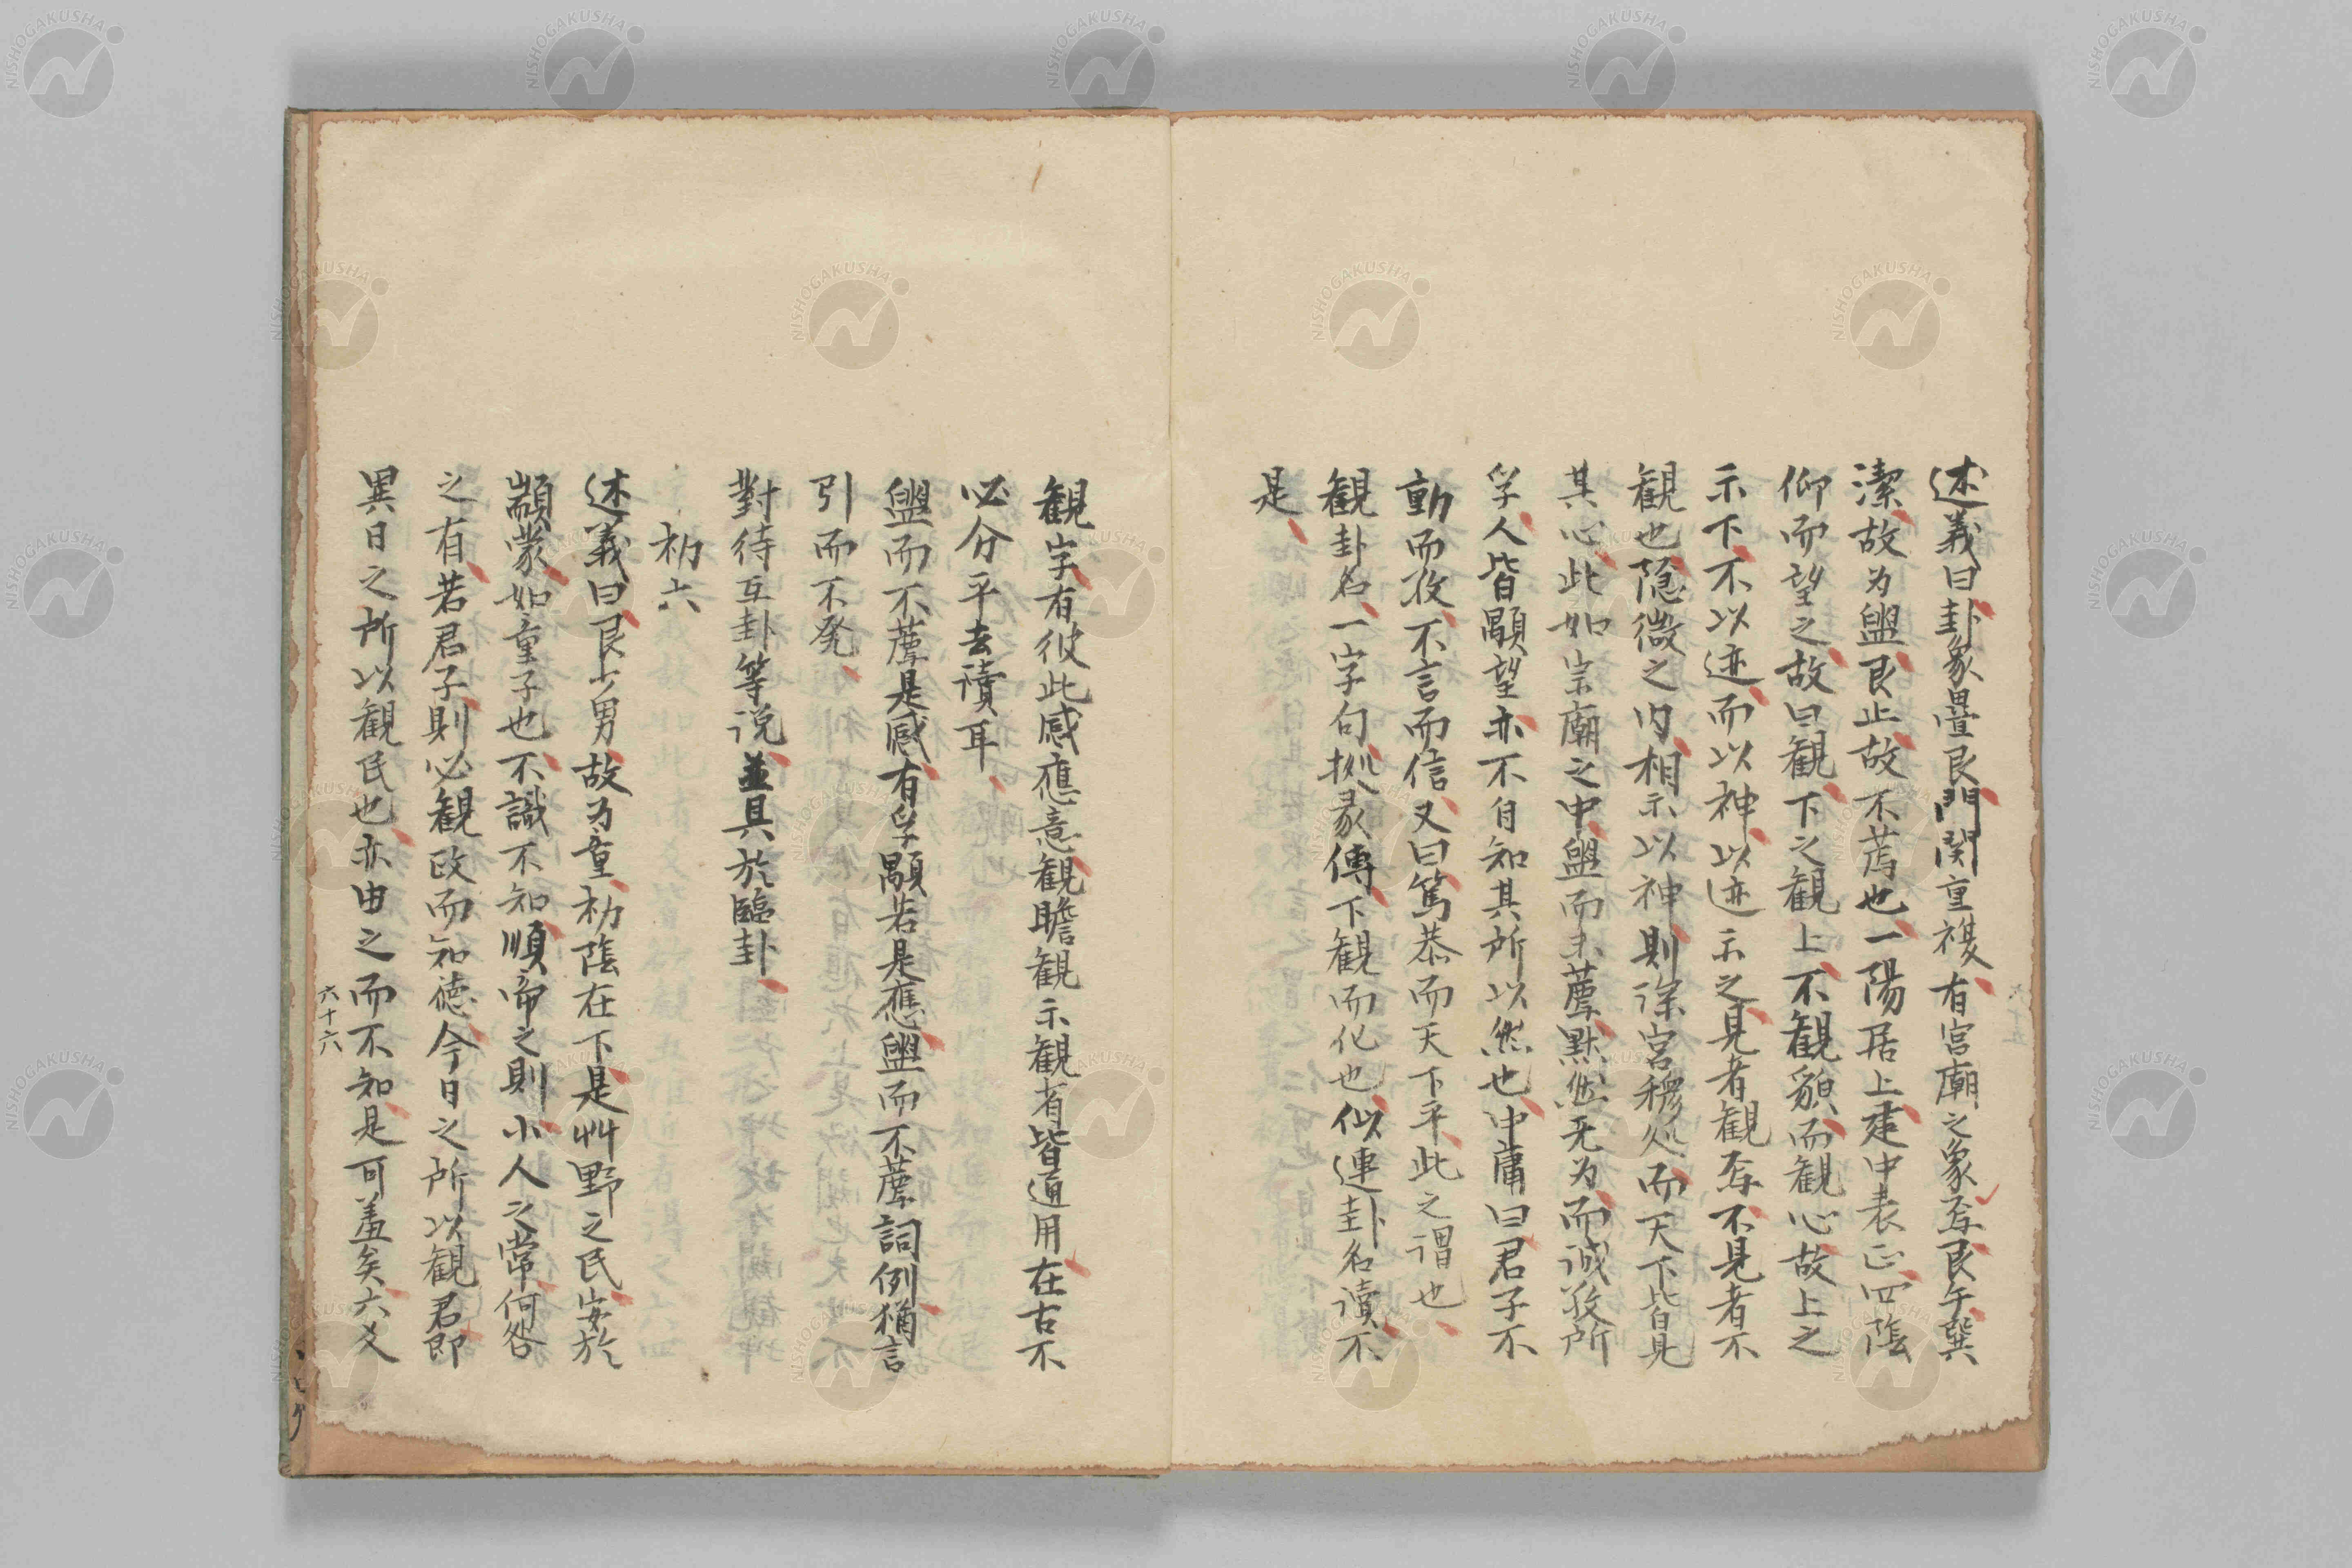 述義曰卦象畳艮門関重複有宮廟之象互艮午巽
潔故为盥艮止故不荐也一陽居上建中表正四陰
仰而望之故曰観下之観上不観貌而観心故上之
示下不以迹而以神以迹示之見者観焉不見者不
観也隠微之内相示以神則深宮穆処而天下皆見
其心此如宗廟之中盥而未薦黙然无为而誠敬所
孚人皆顒望亦不自知其所以然也中庸曰君子不
動而敬不言而信又曰篤恭而天下平此之謂也
観卦名一字句拠彖傳下観而化也似連卦名讀不
是
観字有彼此感應意観瞻観示観省皆通用在古不
必分平去讀耳
盥而不薦是感有孚顒若是應盥而不薦詞例猶言
引而不発
對待互卦等说並具於臨卦
初六
述義曰艮少男故为童初陰在下是艸野之民安於
顓蒙如童子也不識不知順帝之則小人之常何咎
之有若君子則必観政而知徳今日之所以観君即
異日之所以観民也亦由之而不知是可羞矣六爻
六十六
NISHOGAKUSHA